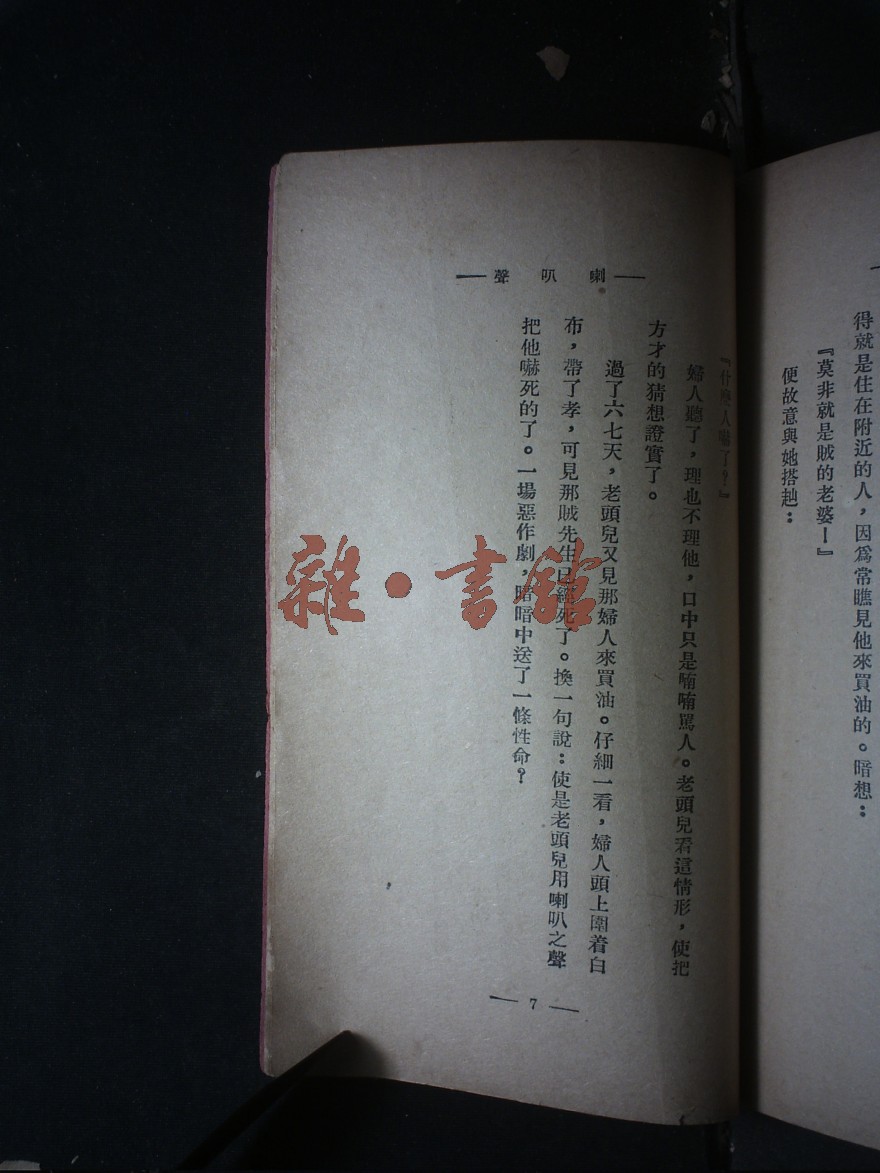 得就是住在附近的人，因爲常瞧見他來買油的。暗想：
『莫非就是賊的老婆！』
便故意與她搭訕：
喇叭聲
『什麼人嚇了？』
婦人聽了，理也不理他，口中只是喃喃罵人。老頭兒看這情形，使把
方才的猜想證實了。
過了六七天，老頭兒又見那婦人來買油。仔細一看，婦人頭上圍着白
布，帶了孝，可見那賊先生已經死了。換一句說：使是老頭兒用喇叭之聲
把他嚇死的了。一場惡作劇，暗暗中送了一條性命？
7
雜·書館